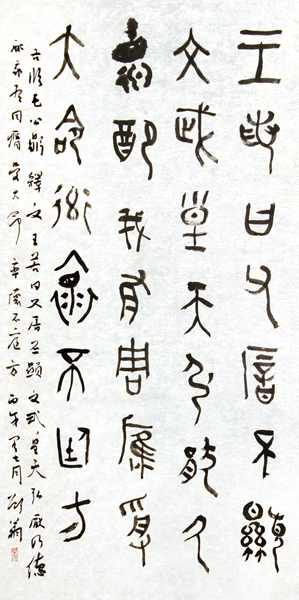 王若曰父厝不顯
文武皇天弘厭厥
德配我有周膺受
大命率懷不廷方
臨毛公鼎 釋文 王若曰父厝丕顯 文武皇天弘厭乃德
配我有周膺受大命 率懷不廷方 丙 七月 翁